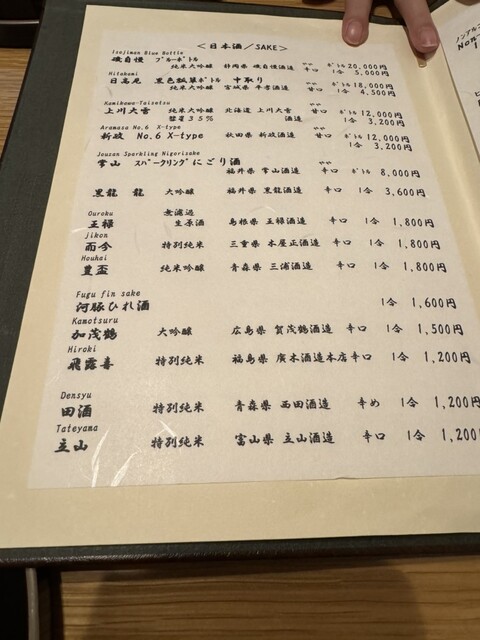 <日本酒/SAKE>
Isojiman Blue Nottle
磯自慢 ブルーボトル やや ボトル 20,000円
純米大吟醸 静岡県 磯自慢酒造 辛口 1合 5,000円
Hitakami
日高見 黒色瓢箪ボトル 中取り やや ボトル 18,000円
純米大吟醸 宮城県 平孝酒造 甘口 1合 4,500円
Kamikawa-Taisetsu
上川大雪 純米大吟醸 北海道 上川大雪 やや ボトル 12,000円
彗星35% 酒造 甘口 1合 3,200円
Aramasa No.6 X-type
新政 No.6 X-type 秋田県 新政酒造 やや 甘口 ボトル 12,000円
1合 3,200円
Jouzan Sparkling Nigorisake
常山 スパークリングにごり酒 やや
福井県 常山酒造 辛口 ボトル 8,000円
黒龍 龍 大吟醸 福井県 黒龍酒造 辛口 1合 3,600円
Ouroku 無濾過
王祿 生原酒 島根県 王祿酒造 辛口 1合 1,800円
jikon
而今 特別純米 三重県 木屋正酒造 辛口 1合 1,800円
Houhai
豊盃 純米吟醸 青森県 三浦酒造 辛口 1合 1,800円
Fugu fin sake
河豚ひれ酒 1合 1,600円
Kamotsuru
加茂鶴 大吟醸 広島県 賀茂鶴酒造 辛口 1合 1,500円
Hiroki
飛露喜 特別純米 福島県 廣木酒造本店 辛口 1合 1,200円
Densyu
田酒 特別純米 青森県 西田酒造 辛め 1合 1,200円
Tateyama
立山 特別純米 富山県 立山酒造 辛口 1合 1,200
ノンアルコ